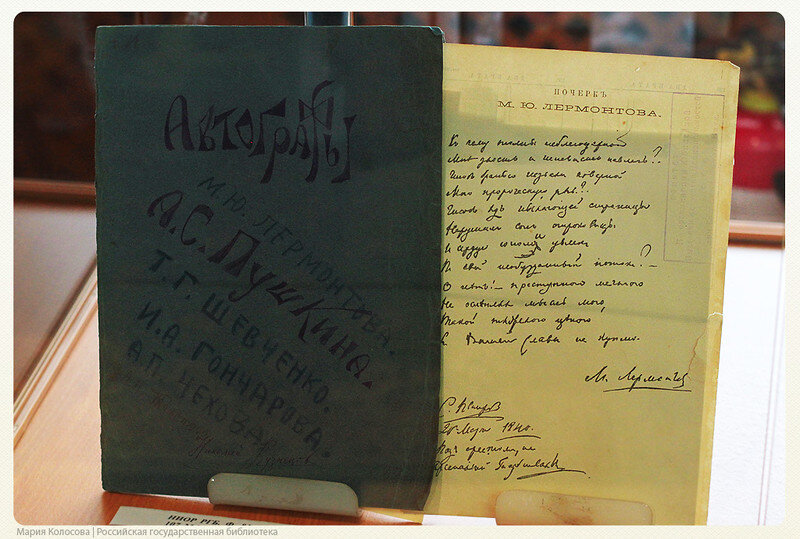 Автографы
М.Ю. ЛЕРМОНТОВА.
А.С. Пушкина.
Т.Г. ШЕВЧЕНКО.
И.А. ГОНЧАРОВА.
А.П. ЧЕХОВА.
ПОЧЕРКЪ
М. Ю. ЛЕРМОНТОВА.
Къ чему толпы неблагодарной
Мнѣ злость и ненависть навлечь?
Чтобъ бранью назвали коварной
Мою пророческую рѣчь?
Чтобъ ядъ пылающей страницы
Нарушилъ сонъ отроковицы
И сердце юноши увлекъ
Въ свой необузданный потокъ? —
О нѣтъ! — преступною мечтою
Не ослѣпляя мысль мою,
Такой тяжелою цѣною
Я Вашей славы не куплю.
М. Лермонтовъ
20 Мар 1840.
подъ арестомъ, на
НИОР РГБ. Ф.
Мария Колосова | Российская государственная библиотека